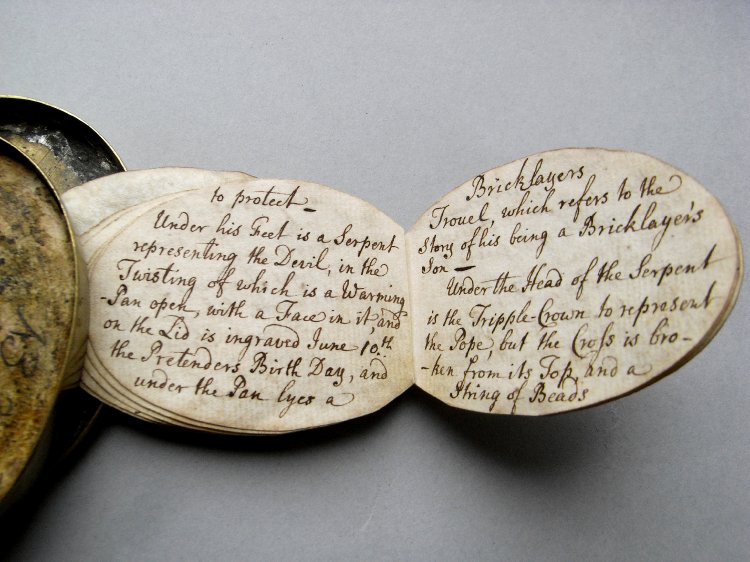 to protect —
Under his Feet is a Serpent
representing the Devil, in the
Twisting of which is a Warming
-Pan open, with a Face in it, and
on the Lid is ingraved June 10.th
the Pretenders Birth Day, and
under the Pan lyes a
Bricklayers
Trouel, which refers to the
Story of his being a Bricklayer's
Son —
Under the Head of the Serpent
is the Tripple-Crown to represent
the Pope, but the Croſs is bro-
-ken from its Top, and a
String of Beads